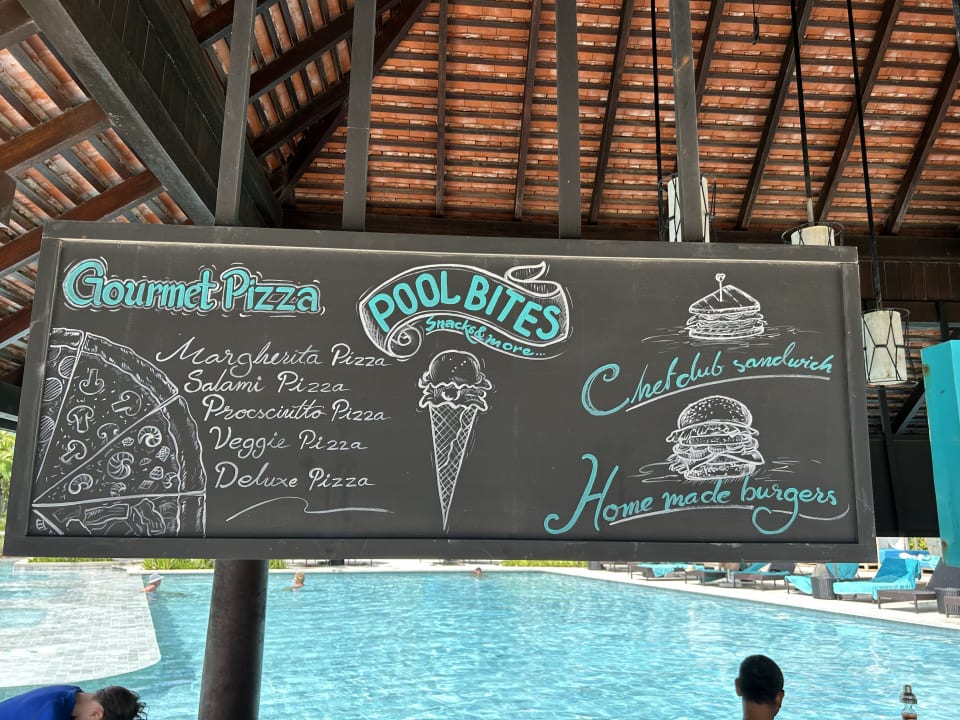 Gourmet Pizza
Margherita Pizza
Salami Pizza
Procsciuitto Pizza
Veggie Pizza
Deluxe Pizza
POOL BITES
Snacks & more...
Chef club sandwich
Home made burgers